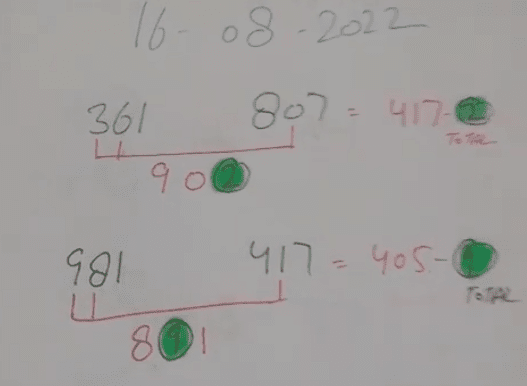 16-08-2022
361 807 = 417-2
TOTAL
902
981 417 = 405-9
TOTAL
891